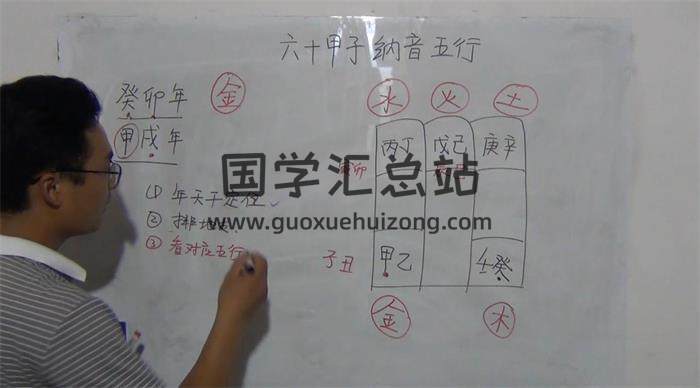 六十甲子纳音五行
癸卯年 金
甲戌年
水 火 土
丙丁 戊己 庚辛
寅卯
国学汇总站
① 年天干定位
www.guoxuehuizong.com
② 排地支
③ 看对应五行
子丑 甲乙 壬癸
金 木